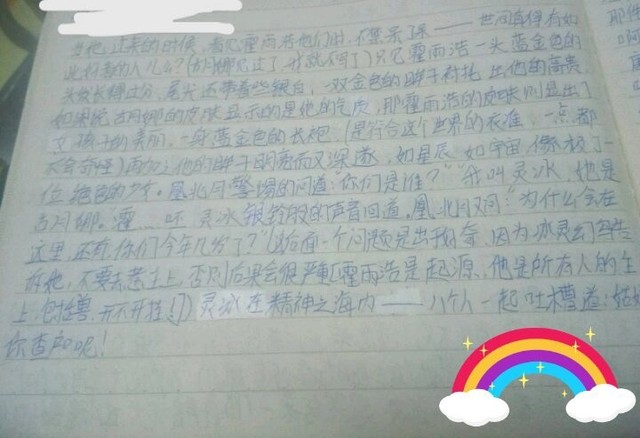 当他过来的时候,看见霍雨浩他们时,不禁呆了呆——世间真得有如
此好看的人儿么?(胡娜见过了,我就不写了)只见霍雨浩一头蓝金色的
头发长得过分,尾尖还带着些银白,一双金色的眸子衬托出他的高贵,
如果说古月娜的皮肤显示的是她的气质,那霍雨浩的皮肤则显出了
女孩子的美丽,一身蓝金色的长袍(是符合这个世界的衣准,一点都
不会奇怪)再加上他的眸子明亮而又深邃,如星辰,如宇宙,像极了一
位绝色的少年。凰北月警惕的问道:"你们是谁?""我叫灵冰,她是
古月娜。"霍……呸 灵冰银铃般的声音回道。凰北月又问:"为什么会在
这里,还有,你们今年几岁了?"(给后面一个问题是出于好奇,因为冰灵幻鸟告
诉他,不要去惹上,否则后果会很严重[霍雨浩是起源,他是所有人的主
上,包括兽,开不开挂!])灵冰在精神之海内——八个人一起吐槽道:姑娘
你查户口呢!